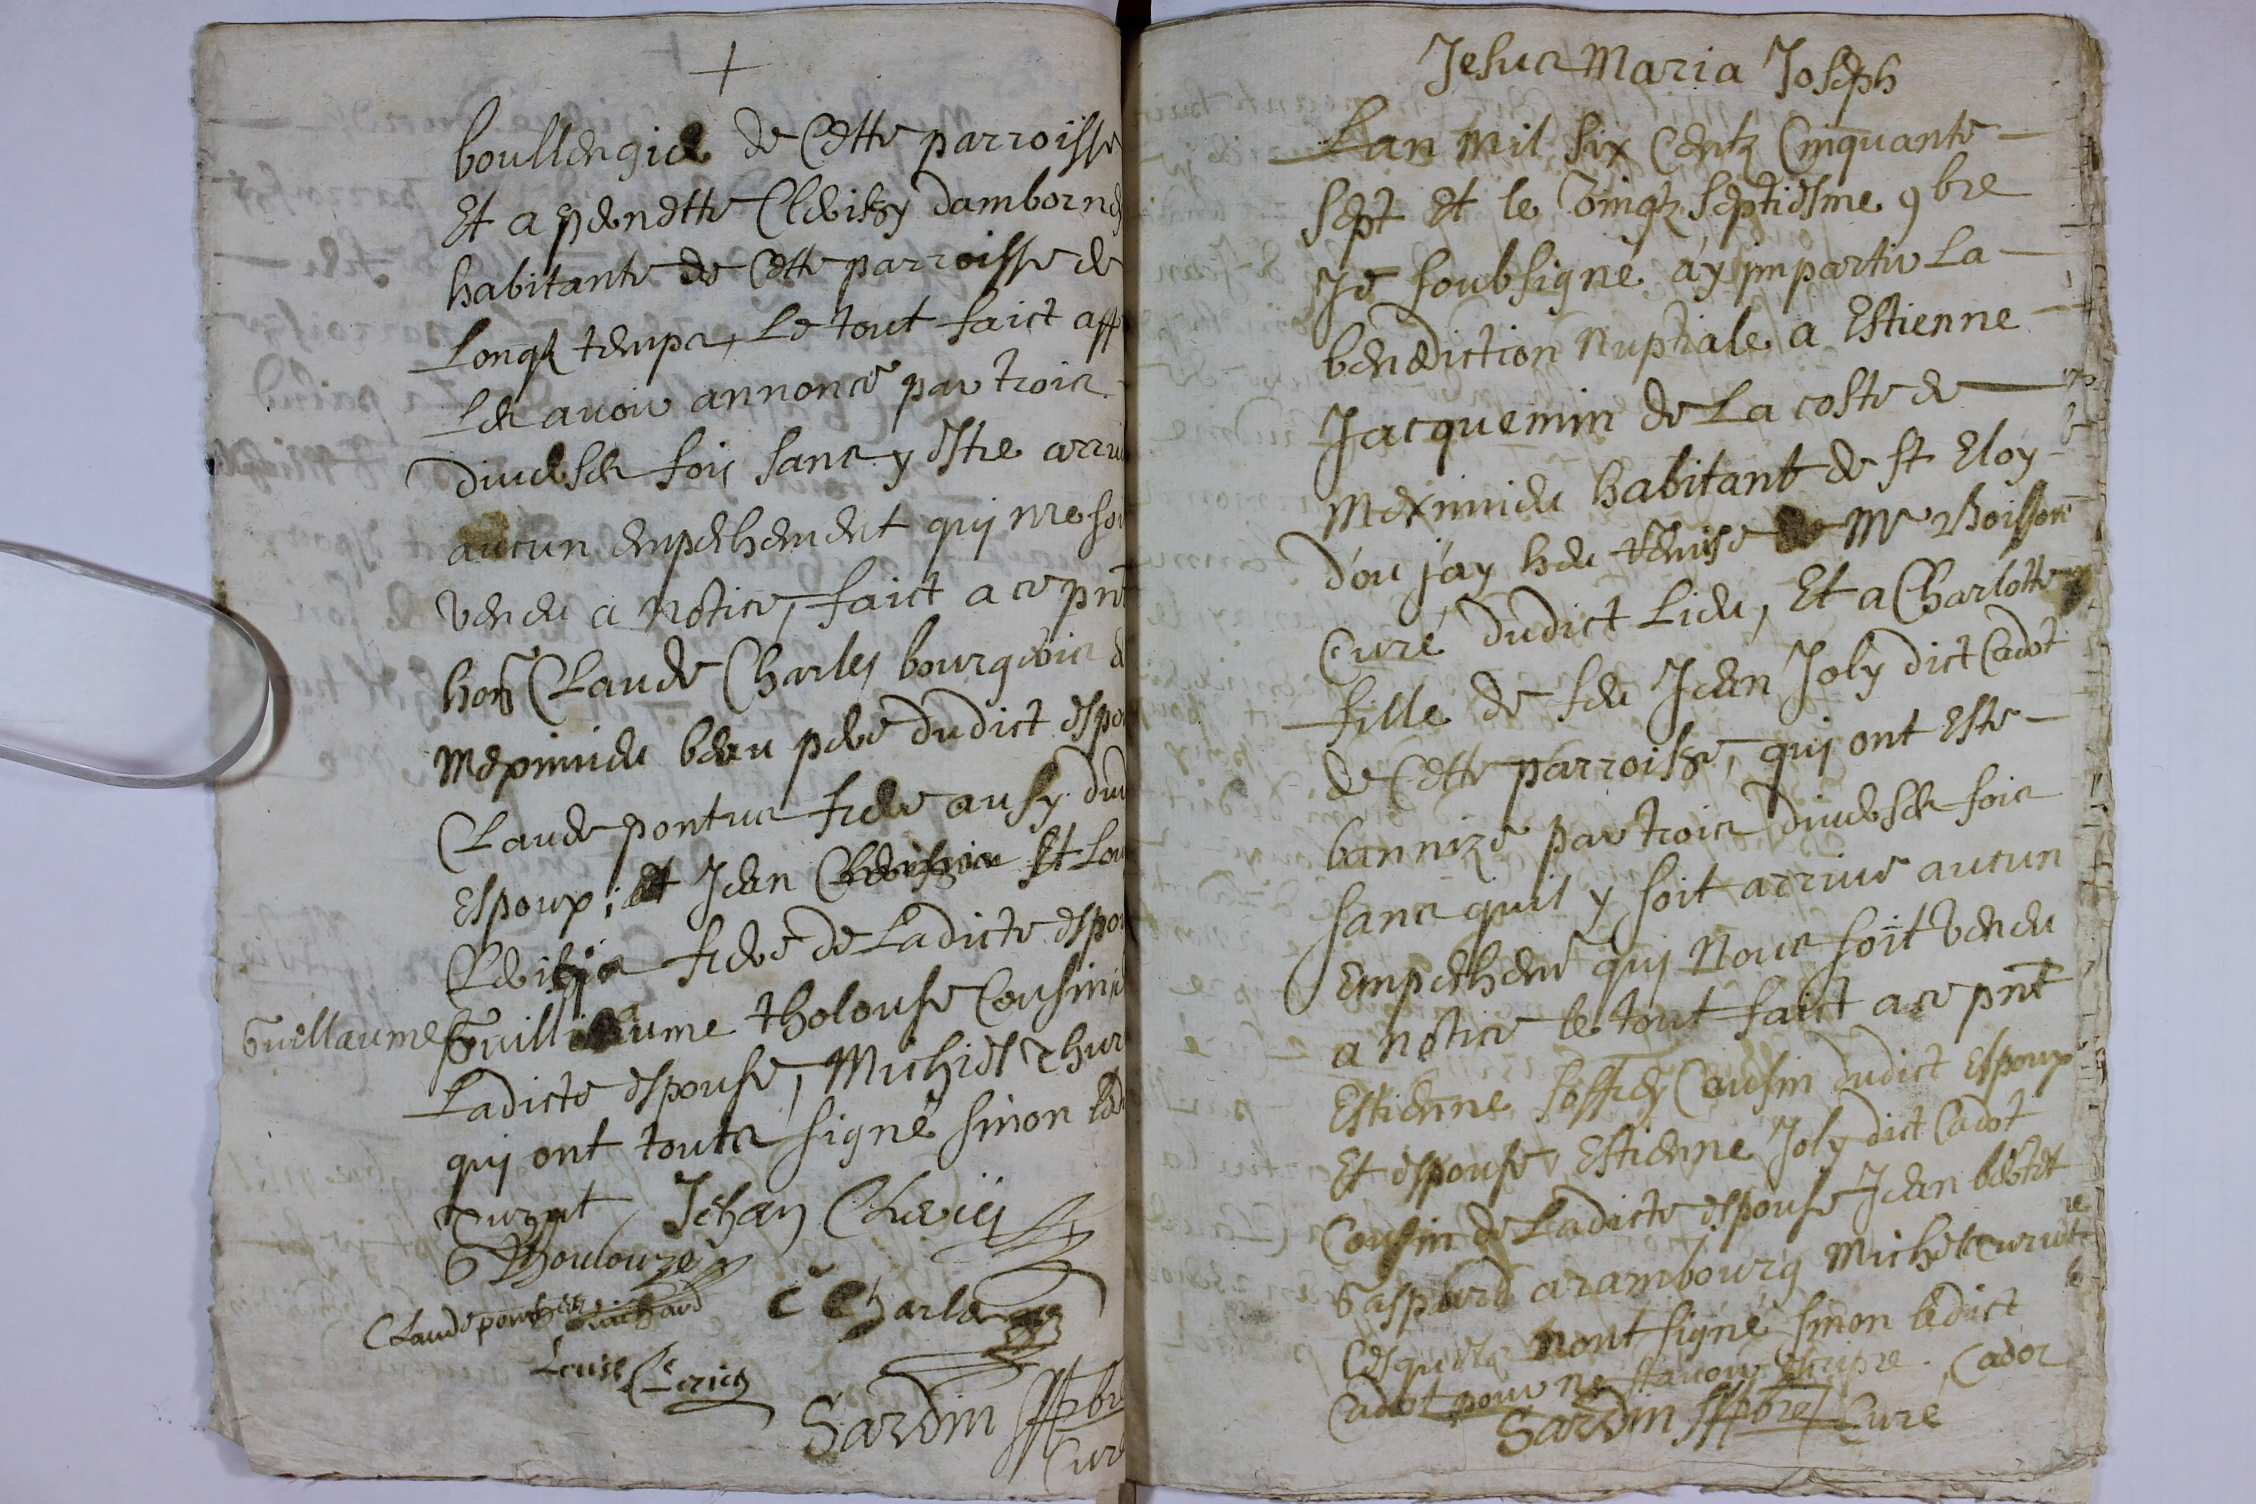 +
boullengier de cette parroisse
Et a penette Clerissy dambornez
habitante de cette parroisse de
Longtz temps, Le tout faict app
Les avoir annoncé par trois
diverses fois sans y estre arriv
aucun empechement quy nre soi
veneu a notice, faict a ce pnt
hon Claude Charles bourgeois d
Meximieu beau pere dudict espo
Claude pontus frere ausy dud
Espoux, et Jean Et Lou
frere de Ladicte espou
Guillaume Guillaume tholouse Cousin
Ladicte espouse, Michiel Thur
quy ont touts signé sinon led
Jehan
G Thoulouze
Claude
C Charles
Louise
Sardin pbre
Cur
Jesus Maria Joseph
Lan mil six Centz Cinquante
sept et le vingtz septiesme 9bre
Je soubsigné ay imparti la
benediction Nuptiale a Estienne
Jacquemin de La coste de
Meximieu habitant de st Eloy
d'ou j'ay heu remise de Mre Boisson
Curé dudict Lieu, Et a Charlotte
fille de feu Jean Joly dict Cadot
de Cette parroisse, quj ont Esté
bannizé par trois diverses fois
sans quil y soit arrivé aucun
Empechemt quj Nous soit veneu
a notice le tout faict a ce pnt
Estienne Joffrey Cousin dudict Espoux
Et espouse, Estienne Joly dict Cadot
Cousin de Ladicte espouse Jean bertet
Gaspard arambourg Michel
Lesquels nont signé sinon ledict
Cadot pour ne scavoir escripre. Cador
Sardin pbre Curé